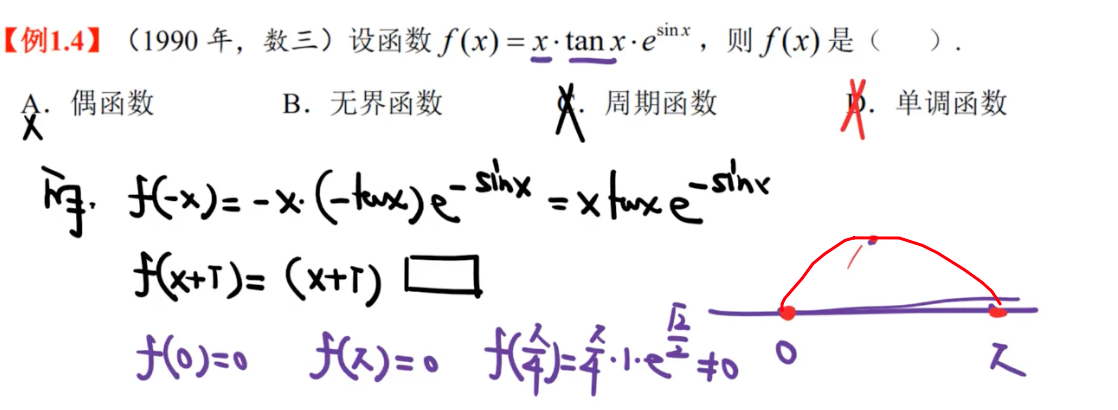 【例1.4】（1990 年，数三）设函数 f(x) = x · tan x · e^{sin x}，则 f(x) 是（　　）.
A. 偶函数 B. 无界函数 C. 周期函数 D. 单调函数
f(-x) = -x · (-tanx) e^{-sinx} = x tanx e^{-sinx}
f(x+T) = (x+T) □
f(0)=0 f(π)=0 f(π/4)=π/4 · 1 · e^{√2/2} ≠ 0
0 π